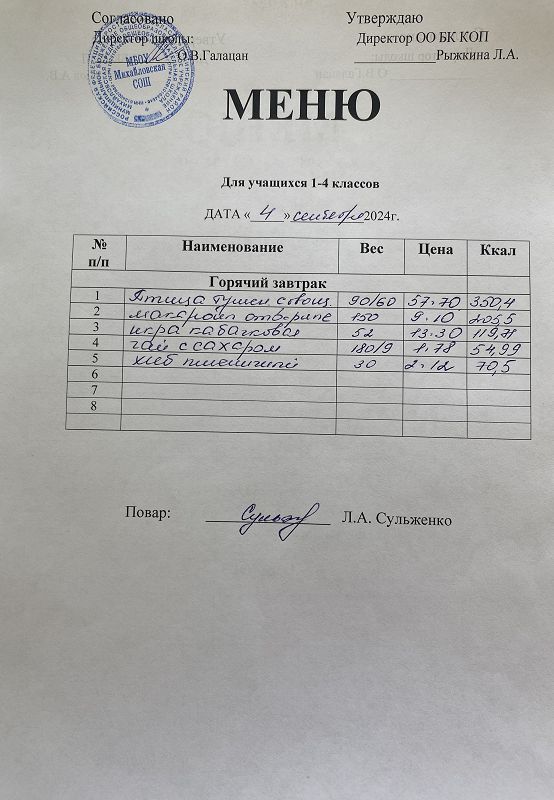 Согласовано Утверждаю
Директор школы: Директор ОО БК КОП
О.В.Галацан Рыжкина Л.А.
МБОУ
Михайловская
СОШ
МЕНЮ
Для учащихся 1-4 классов
ДАТА « 4 » сентября 2024г.
№ п/п Наименование Вес Цена Ккал
Горячий завтрак
1 Птица тушен с овощ 90/60 57.70 350,4
2 макароны отварные 150 9.10 205,5
3 икра кабачковая 52 13.30 119,71
4 чай с сахаром 180/9 1.78 54,99
5 хлеб пшеничный 30 2.12 70,5
6
7
8
Повар: Л.А. Сульженко